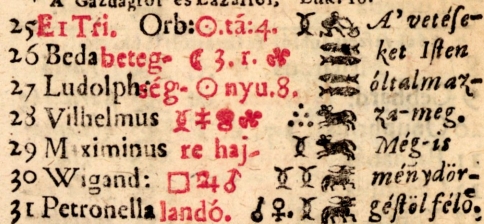 A' Gazdagról és Lázárról, Luk: 16.
25 E1 Tri. Orb: ☉.tá:4. A' vetése-
26 Beda beteg- ☾ 3. 1. ket Iſten
27 Ludolph. ség- ☉ nyu.8. óltalmaz-
28 Vilhelmus za-meg.
29 M ximinus re haj- Még-is
30 Wigand: □ ♃ ♂ mẽnydör-
31 Petronella landó. ♂ ♀. géſtöl félö.